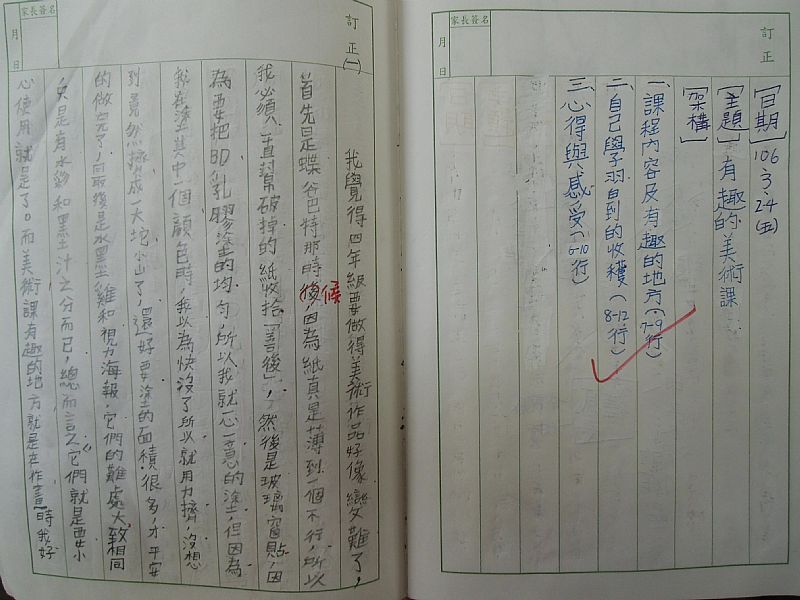 訂正
家長簽名
月
日
[日期] 106、3、24(五)
[主題] 有趣的美術課
[架構]
一、課程內容及有趣的地方(7-9行)
二、自己學習到的收穫(8-12行)
三、心得與感受(6-10行)
訂正(一)
家長簽名
月
日
我覺得四年級要做得美術作品好像變難了,
首先是蝶谷巴特那時後候,因為紙真是薄到一個不行,所以
我必須一直幫破掉的紙收拾「善後」,然後是玻璃窗貼,因
為要把BD乳膠塗的均勻,所以我就心一意的塗,但因為
我在塗其中一個顏色時,我以為快沒了所以就用力擠,沒想
到竟然擠成一大坨小山了,還好要塗的面積很多,才平安
的做完了,最後是水墨雞和視力海報,它們的難處大致相同
只是有水彩和墨汁之分而已,總而言之它們就是要小
心使用就是了。而美術課有趣的地方就是在作畫時我好